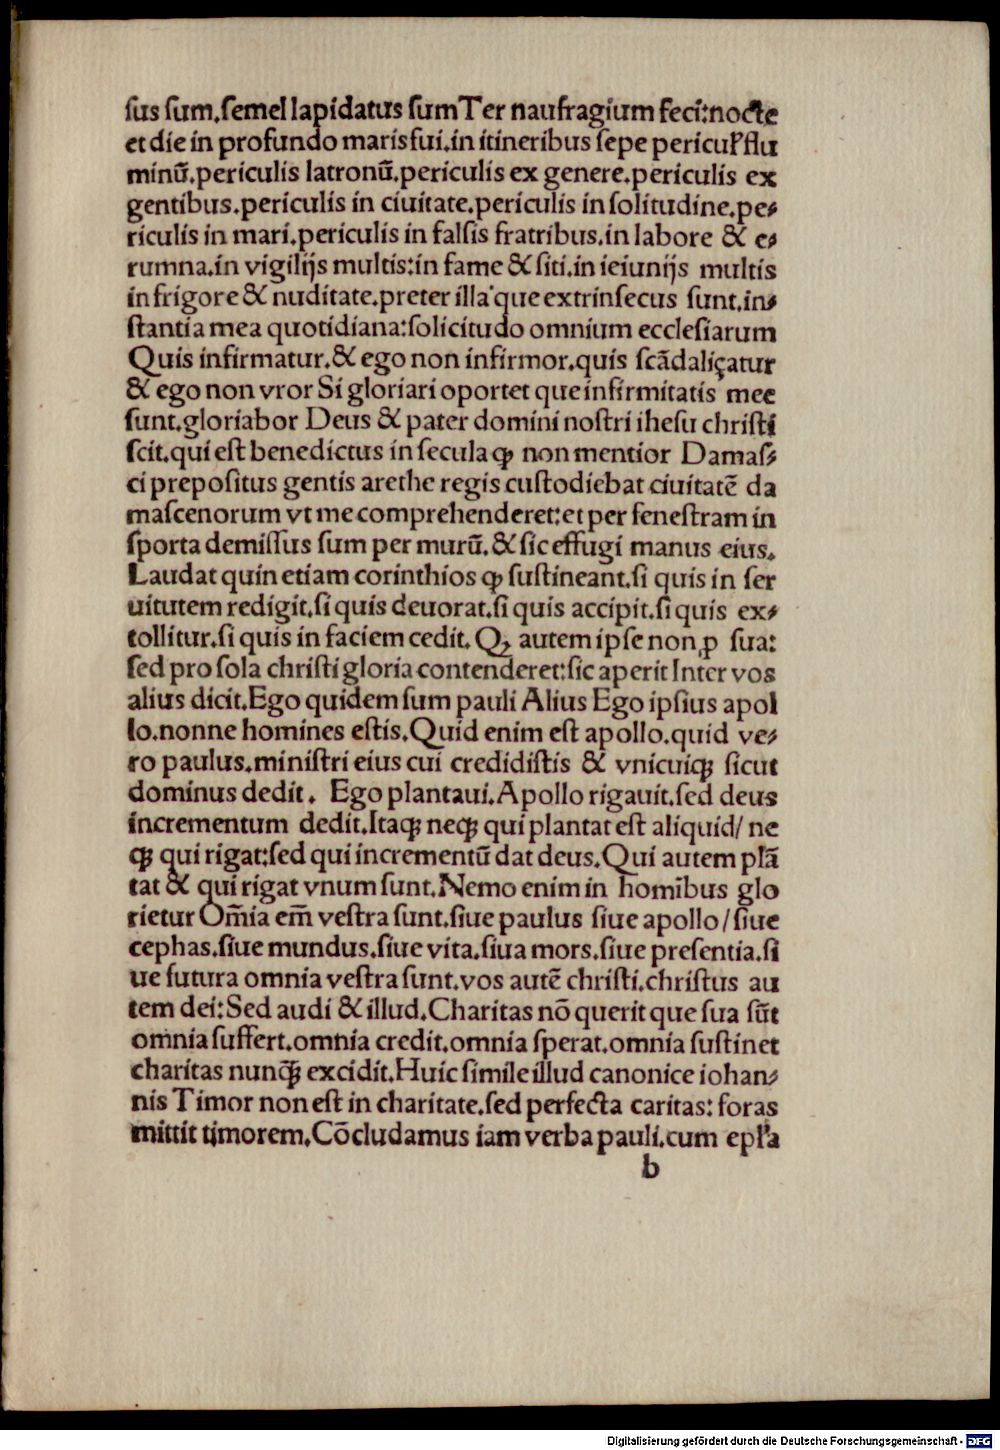 ſus ſum.ſemel lapidatus ſum Ter naufragium feci:nocte
et die in profundo maris fui.in itineribus ſepe pericuł flu
minū.periculis latronū.periculis ex genere.periculis ex
gentibus.periculis in ciuitate.periculis in ſolitudine.pe⸗
riculis in mari.periculis in falſis fratribus.in labore & e⸗
rumna.in vigilijs multis:in fame & ſiti.in ieiunijs multis
in frigore & nuditate.preter illa que extrinſecus ſunt.in⸗
ſtantia mea quotidiana:ſolicitudo omnium eccleſiarum
Quis infirmatur.& ego non infirmor.quis ſcādaliçatur
& ego non vror Si gloriari oportet que infirmitatis mee
ſunt.gloriabor Deus & pater domini noſtri ihesu chriſti
ſcit.qui eſt benedictus in ſecula ꝙ non mentior Damaſ⸗
ci prepoſitus gentis arethe regis cuſtodiebat ciuitatē da
maſcenorum vt me comprehenderet:et per feneſtram in
ſporta demiſſus ſum per murū.& ſic effugi manus eius.
Laudat quin etiam corinthios ꝙ ſuſtineant.ſi quis in ſer
uitutem redigit.ſi quis deuorat.ſi quis accipit.ſi quis ex⸗
tollitur.ſi quis in faciem cedit. Qꝫ autem ipſe non ꝓ sua:
ſed pro ſola chriſti gloria contenderet:ſic aperit Inter vos
alius dicit.Ego quidem ſum pauli Alius Ego ipſius apol
lo.nonne homines eſtis.Quid enim eſt apollo.quid ve⸗
ro paulus.miniſtri eius cui credidiſtis & vnicuiqꝫ ſicut
dominus dedit. Ego plantaui.Apollo rigauit.ſed deus
incrementum dedit.Itaqꝫ neqꝫ qui plantat eſt aliquid/ ne
qꝫ qui rigat:ſed qui incrementū dat deus.Qui autem plā
tat & qui rigat vnum ſunt.Nemo enim in homībus glo
rietur Om̄ia em̄ veſtra ſunt.ſiue paulus ſiue apollo/ſiue
cephas.ſiue mundus.ſiue vita.ſiua mors.ſiue preſentia.ſi
ue futura omnia veſtra ſunt.vos autē chriſti.chriſtus au
tem dei:Sed audi & illud.Charitas nō querit que ſua sūt
omnia ſuffert.omnia credit.omnia ſperat.omnia ſuſtinet
charitas nunqꝫ excidit.Huic ſimile illud canonice iohan⸗
nis Timor non eſt in charitate.ſed perfecta caritas: foras
mittit timorem.Cōcludamus iam verba pauli.cum epła
b
Digitalisierung gefördert durch die Deutsche Forschungsgemeinschaft - DFG